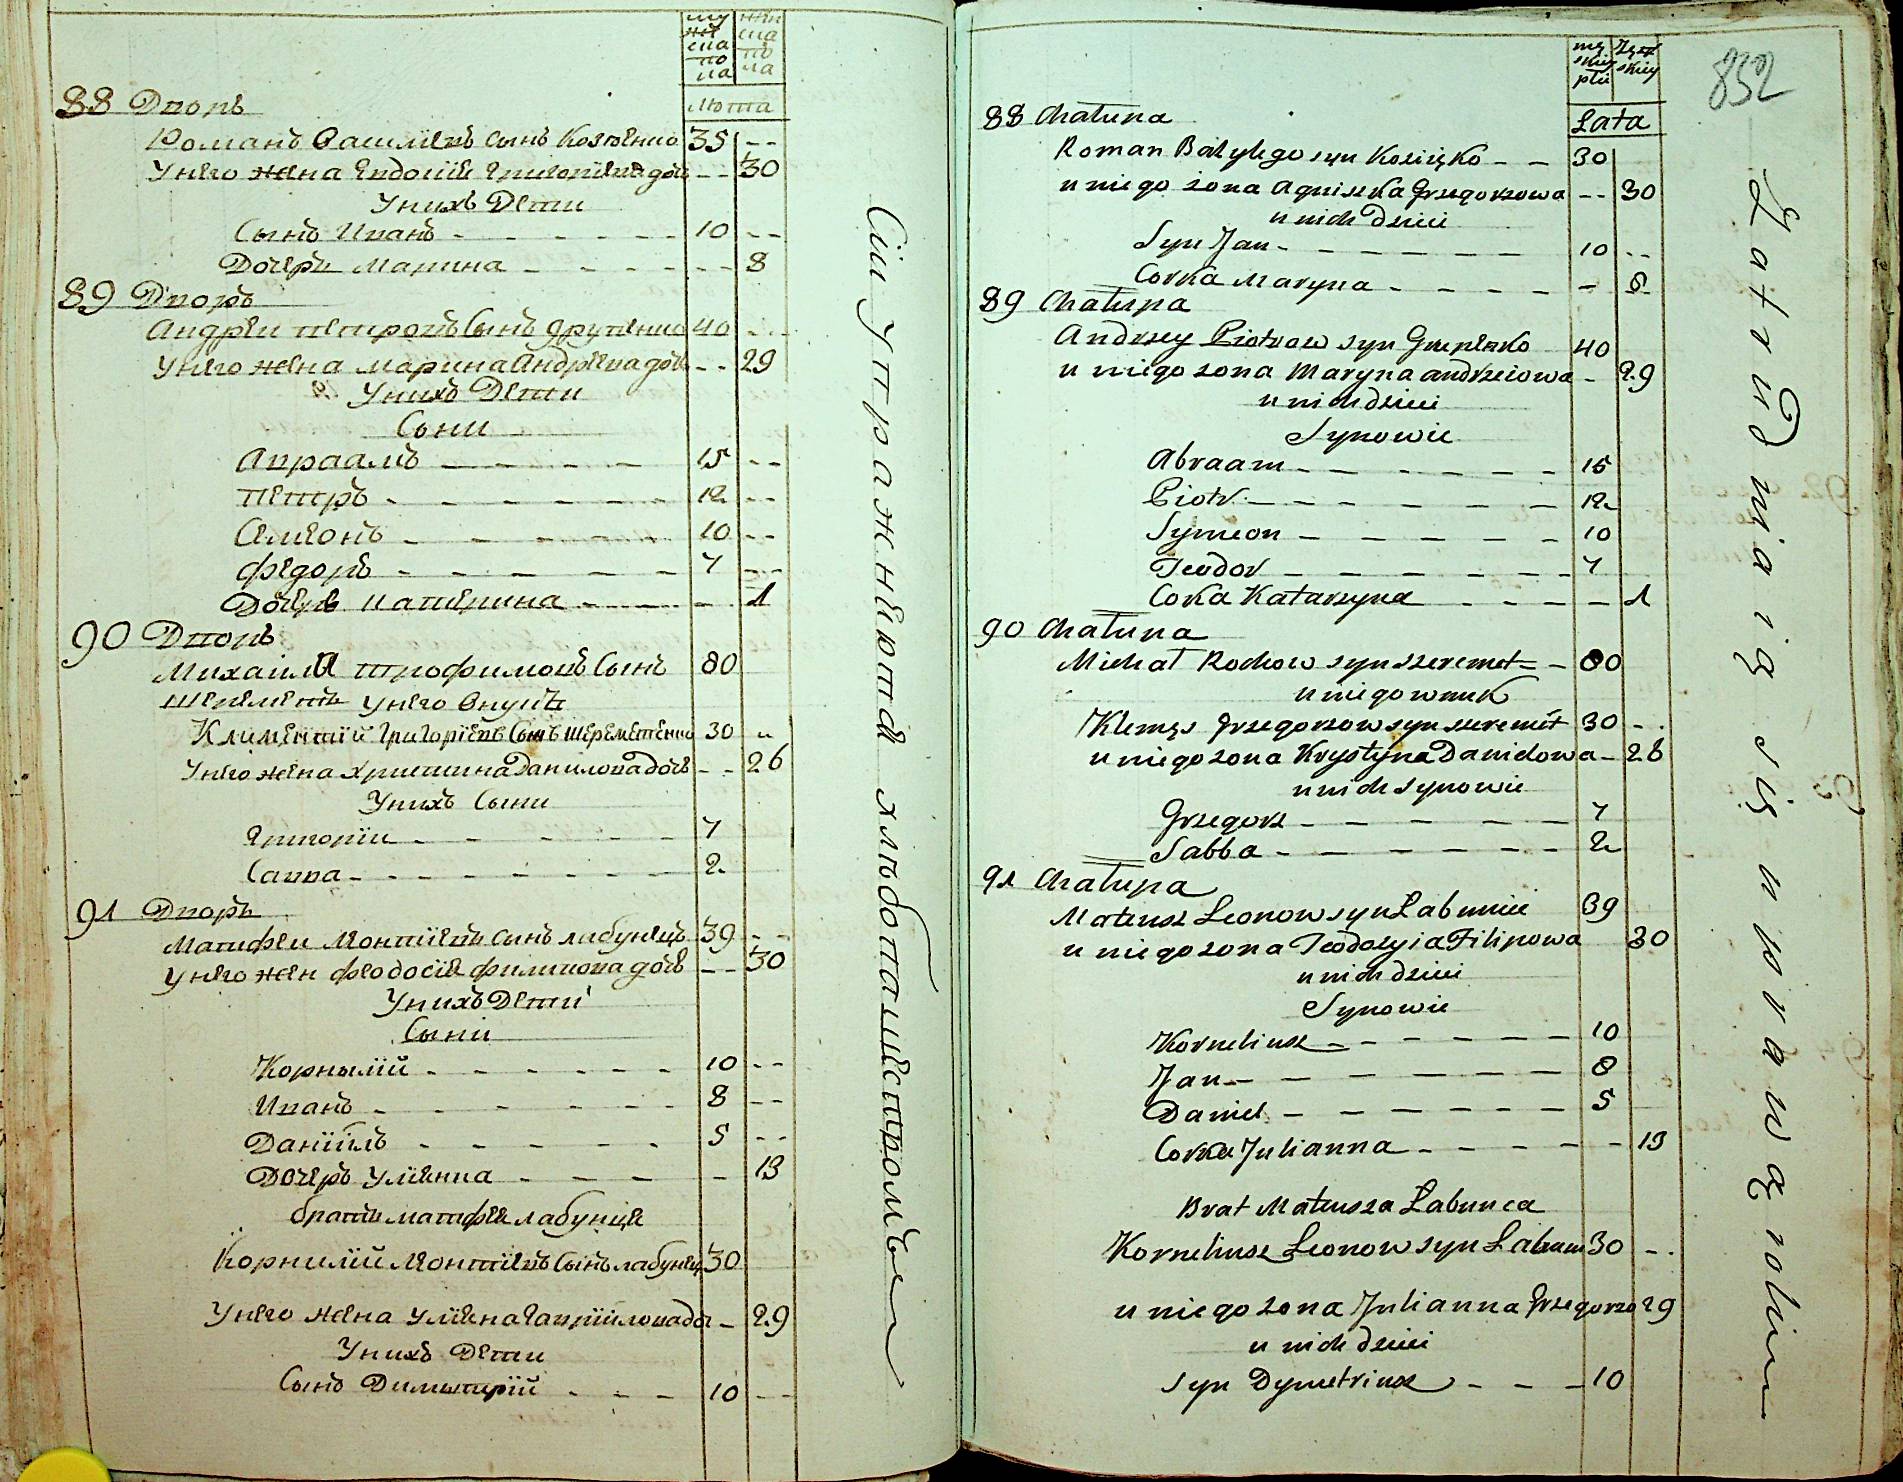 мужеска пола
женска пола
лѣта
88 Дворъ
Романъ Васильевъ сынъ 35 --
У него жена Евдокія Григориева дочь -- 30
У нихъ Дети
Сынъ Иванъ - - - - - - 10 --
Дочерь Марина - - - - - -- 8
89 Дворъ
Андреи Петровъ Сынъ 40 --
У него жена Марина Андреева дочь -- 29
У нихъ Дети
Сыни
Авраамъ - - - - - 15 --
Петръ - - - - - - 12 --
Семіонъ - - - - - 10 --
Федоръ - - - - - 7 --
Дочерь Катерина - - - - - 1
90 Дворъ
Михаила Трофимовъ Сынъ 80
Шереметъ У него Внукъ
Климентій Григоріевъ Сынъ Шереметенко 30 --
У него жена Христина Данилова дочь -- 26
У нихъ Сыни
Григоріи - - - - - 7
Савва - - - - - - 2
91 Дворъ
Матфеи Леонтіевъ сынъ лабунецъ 39 --
У него жен Феодосія Филипова дочь -- 30
У нихъ Дети
Сыни
Корнилій - - - - - - 10 --
Иванъ - - - - - - 8 --
Даніилъ - - - - - 5 --
Дочерь Уліянна - - - - - 13
братъ матфея лабунця
Корнилій Леонтіевъ Сынъ лабунец 30
У него жена Уліяна Гавріилова доч - 29
У нихъ Дети
Сынъ Димитрій - - - 10 --
Сіи упражнаются хлѣбопашествомъ
832
męskiey płci
Żęskiey
Lata
88 Chałupa
Roman Bazylego syn Kosięko - - 30
u niego żona Agniszka Grzegorzowa -- 30
u nich Dzieci
Syn Jan - - - - - - - 10 --
Corka Maryna - - - - - - 8
89 Chałupa
Andrzey Piotrow syn 40
u niego zona Maryna andrzeiowa - 29
u nich dzieci
Synowie
Abraam - - - - - - - 15
Piotr - - - - - - - 12
Symeon - - - - - - 10
Teodor - - - - - - - 7
Corka Katarzyna - - - - - 1
90 Chałupa
Michał Rochow syn szeremet - - 80
u niego wnuk
Klemęs Grzegorzow syn szeremét 30 - .
u niego zona Krystyna Danidowa - 26
u nich synowie
Grzegorz - - - - - - 7
Sabba - - - - - - - 2
91 Chałupa
Mateusz Leonow syn Łabuniec 39
u niego zona Teodozyia Filipowa 30
u nich dzieci
Synowie
Korneliusz - - - - - - 10
Jan - - - - - - - 8
Daniel - - - - - - 5
Corka Julianna - - - - - 13
Brat Mateusza Łabunca
Korneliusz Leonow syn Łabun 30 - .
u niego zona Julianna Grzegorzo 29
u nich dzieci
syn Dymetriusz - - - - 10
Zatrudniaią się uprawą roli